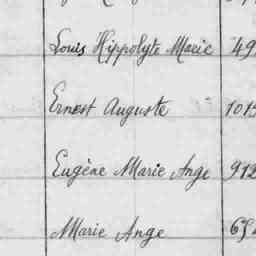 Louis Hippolyte Marie 49
Ernest Auguste 1015
Eugène Marie Ange 912
Marie Ange